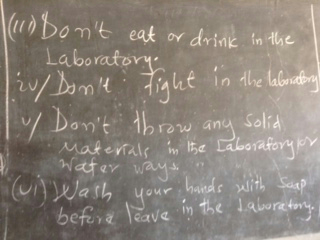 (iii) Don't eat or drink in the
Laboratory.
iv/ Don't fight in the laboratory
v/ Don't throw any solid
materials in the Laboratory or
water ways.
(vi) Wash your hands with soap
before leave in the Laboratory.